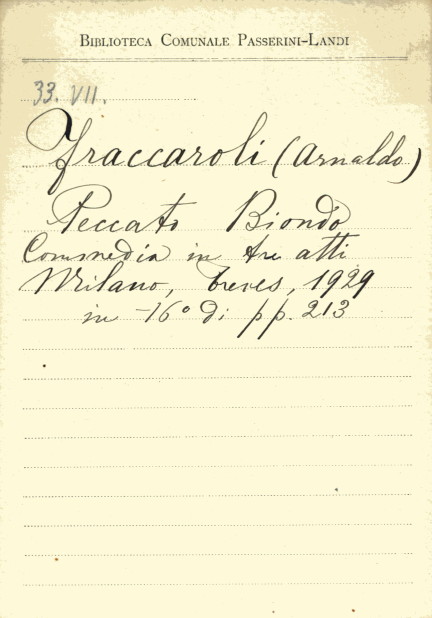 BIBLIOTECA COMUNALE PASSERINI-LANDI
33. VII.
Fraccaroli (Arnaldo)
Peccato Biondo
Commedia in tre atti
Milano, Treves, 1929
in -16° di pp. 213